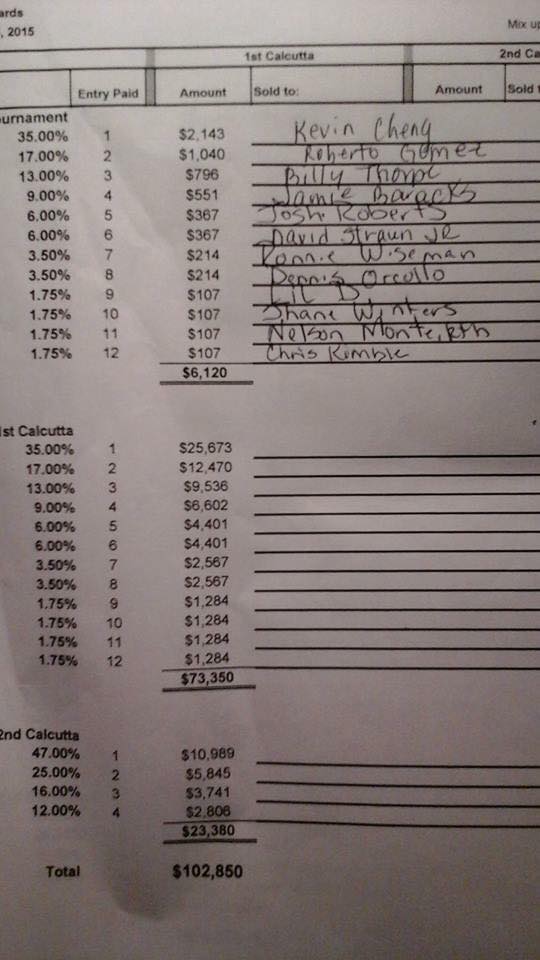 ards
, 2015 Mix up
1st Calcutta 2nd Ca
Entry Paid Amount Sold to: Amount Sold t
urnament
35.00% 1 $2,143 Kevin Cheng
17.00% 2 $1,040 Roberto Gomez
13.00% 3 $796 Billy Thorpe
9.00% 4 $551 Jamie Baracks
6.00% 5 $367 Josh Roberts
6.00% 6 $367 David Straun JR
3.50% 7 $214 Ronnie Wiseman
3.50% 8 $214 Dennis Orcollo
1.75% 9 $107 Lil D
1.75% 10 $107 Shane Winters
1.75% 11 $107 Nelson
1.75% 12 $107 Chris Kimble
$6,120
1st Calcutta
35.00% 1 $25,673
17.00% 2 $12,470
13.00% 3 $9,536
9.00% 4 $6,602
6.00% 5 $4,401
6.00% 6 $4,401
3.50% 7 $2,567
3.50% 8 $2,567
1.75% 9 $1,284
1.75% 10 $1,284
1.75% 11 $1,284
1.75% 12 $1,284
$73,350
2nd Calcutta
47.00% 1 $10,989
25.00% 2 $5,845
16.00% 3 $3,741
12.00% 4 $2,806
$23,380
Total $102,850